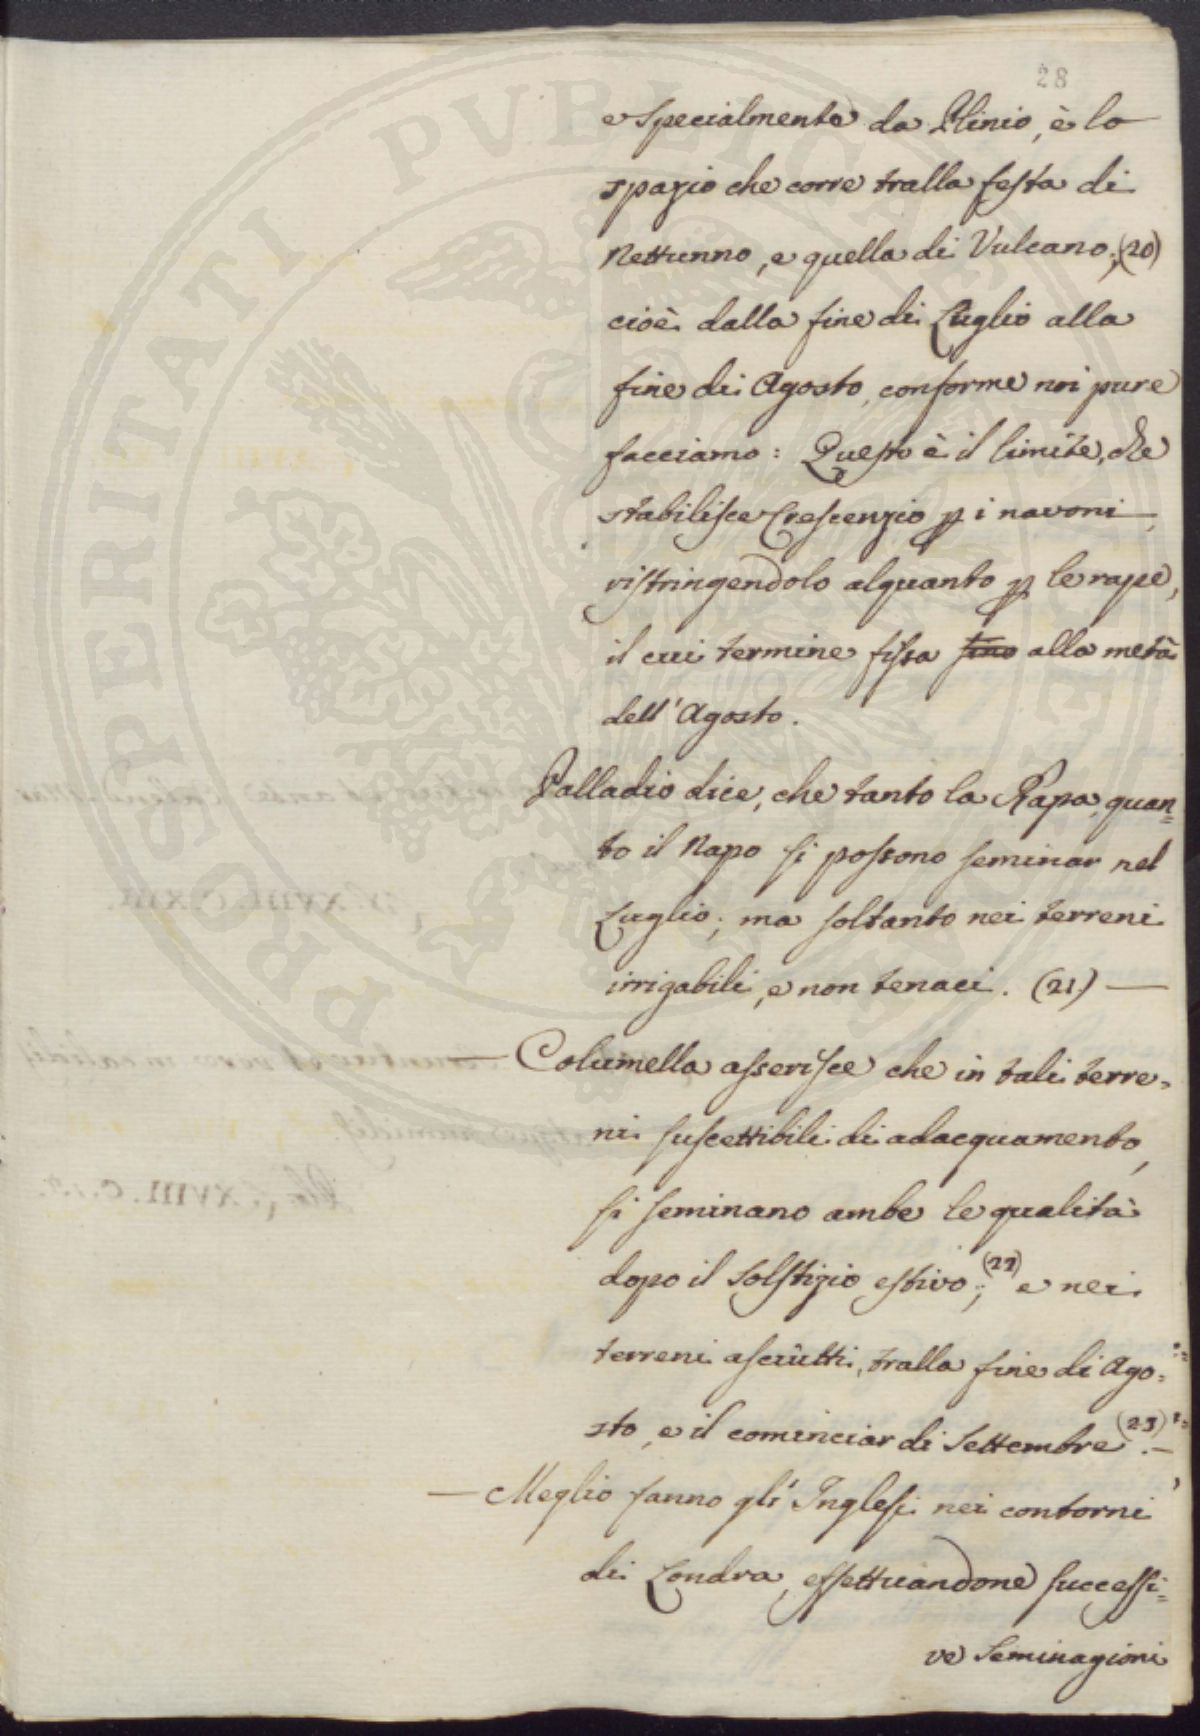 28
e specialmente da Plinio, è lo
spazio che corre tralla festa di
Nettunno, e quella di Vulcano; (20)
cioè dalla fine di Luglio alla
fine di Agosto, conforme noi pure
facciamo: Questo è il limite, che
stabilisce Crescenzio p i navoni,
ristringendolo alquanto p le rape,
il cui termine fissa fino alla metà
dell'Agosto.
Palladio dice, che tanto la Rapa, quan=
to il Napo si possono seminar nel
Luglio; ma soltanto nei terreni
irrigabili, e non tenaci. (21) —
— Columella asserisce che in tali terre=
ni suscettibili di adacquamento,
si seminano ambe le qualità
dopo il solstizio estivo; (22) e nei
terreni asciutti, tralla fine di Ago=
sto, e il cominciar di Settembre (23). —
— Meglio fanno gl'Inglesi nei contorni
di Londra, effettuandone successi=
ve seminagioni
PROSPERITATI PUBLICAE